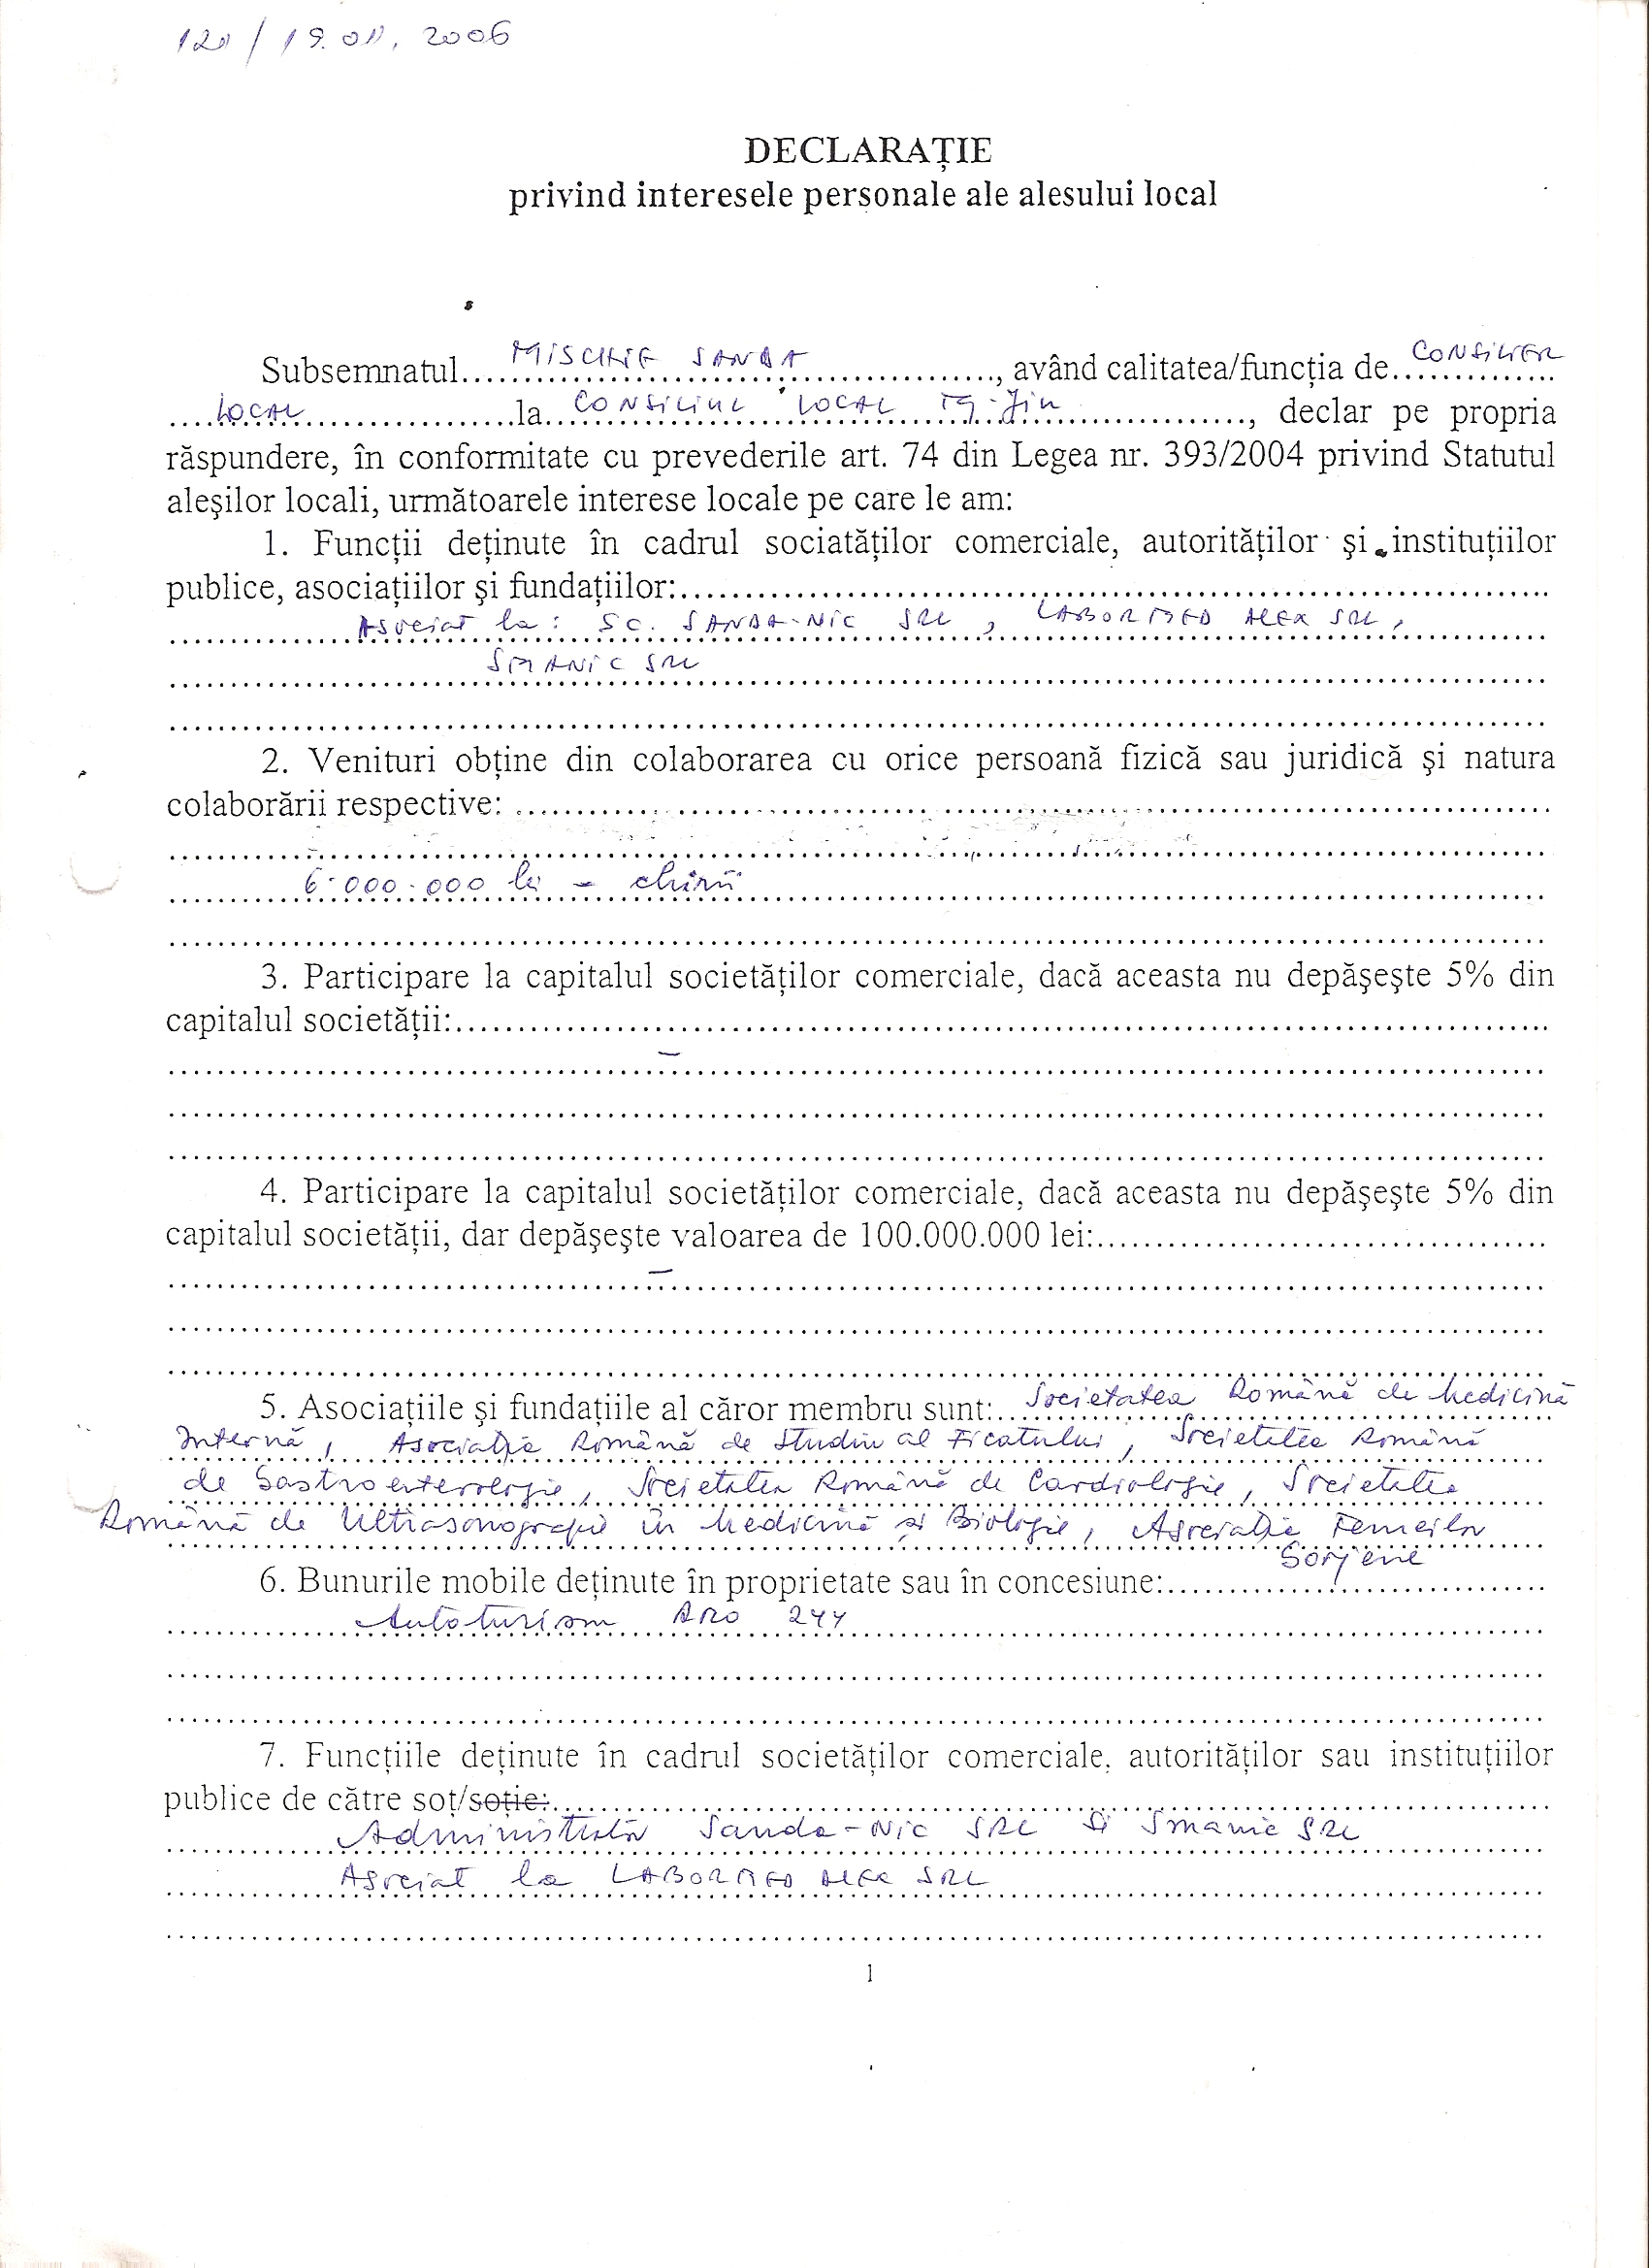 120 / 19.01.2006
DECLARAŢIE
privind interesele personale ale alesului local
Subsemnatul....MISCHIE SANDA...................., având calitatea/funcţia de..CONSILIER
....LOCAL....................la...CONSILIUL LOCAL Tg-Jiu..................., declar pe propria
răspundere, în conformitate cu prevederile art. 74 din Legea nr. 393/2004 privind Statutul
aleşilor locali, următoarele interese locale pe care le am:
1. Funcţii deţinute în cadrul sociatăţilor comerciale, autorităţilor şi instituţiilor
publice, asociaţiilor şi fundaţiilor:..............................
Asociat la: SC. SANDA-NIC SRL, LABORMED ALEX SRL,
SMANIC SRL
2. Venituri obţine din colaborarea cu orice persoană fizică sau juridică şi natura
colaborării respective: ..............................
6.000.000 lei - chirii
3. Participare la capitalul societăţilor comerciale, dacă aceasta nu depăşeşte 5% din
capitalul societăţii:..............................
–
4. Participare la capitalul societăţilor comerciale, dacă aceasta nu depăşeşte 5% din
capitalul societăţii, dar depăşeşte valoarea de 100.000.000 lei:..............................
–
5. Asociaţiile şi fundaţiile al căror membru sunt:...Societatea Română de Medicină
Internă, Asociaţia Română de Studiu al Ficatului, Societatea Română
de Gastroenterologie, Societatea Română de Cardiologie, Societatea
Română de Ultrasonografie în Medicină şi Biologie, Asociaţia Femeilor
Gorjene
6. Bunurile mobile deţinute în proprietate sau în concesiune:..............................
Autoturism ARO 244
7. Funcţiile deţinute în cadrul societăţilor comerciale, autorităţilor sau instituţiilor
publice de către soţ/soţie:..............................
Administrator Sanda-Nic SRL si Smanic SRL
Asociat la LABORMED ALEX SRL
1